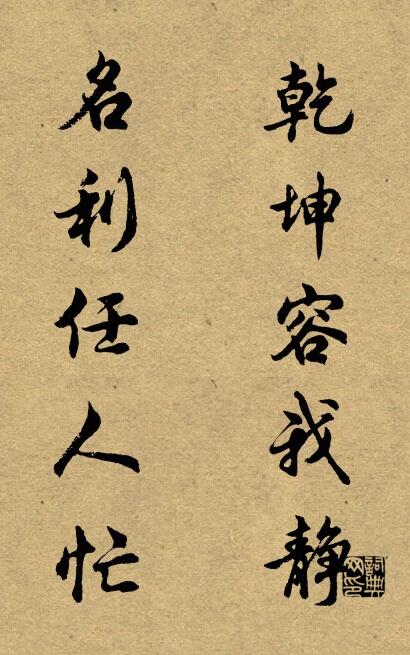 乾坤容我静
名利任人忙
詞典网印